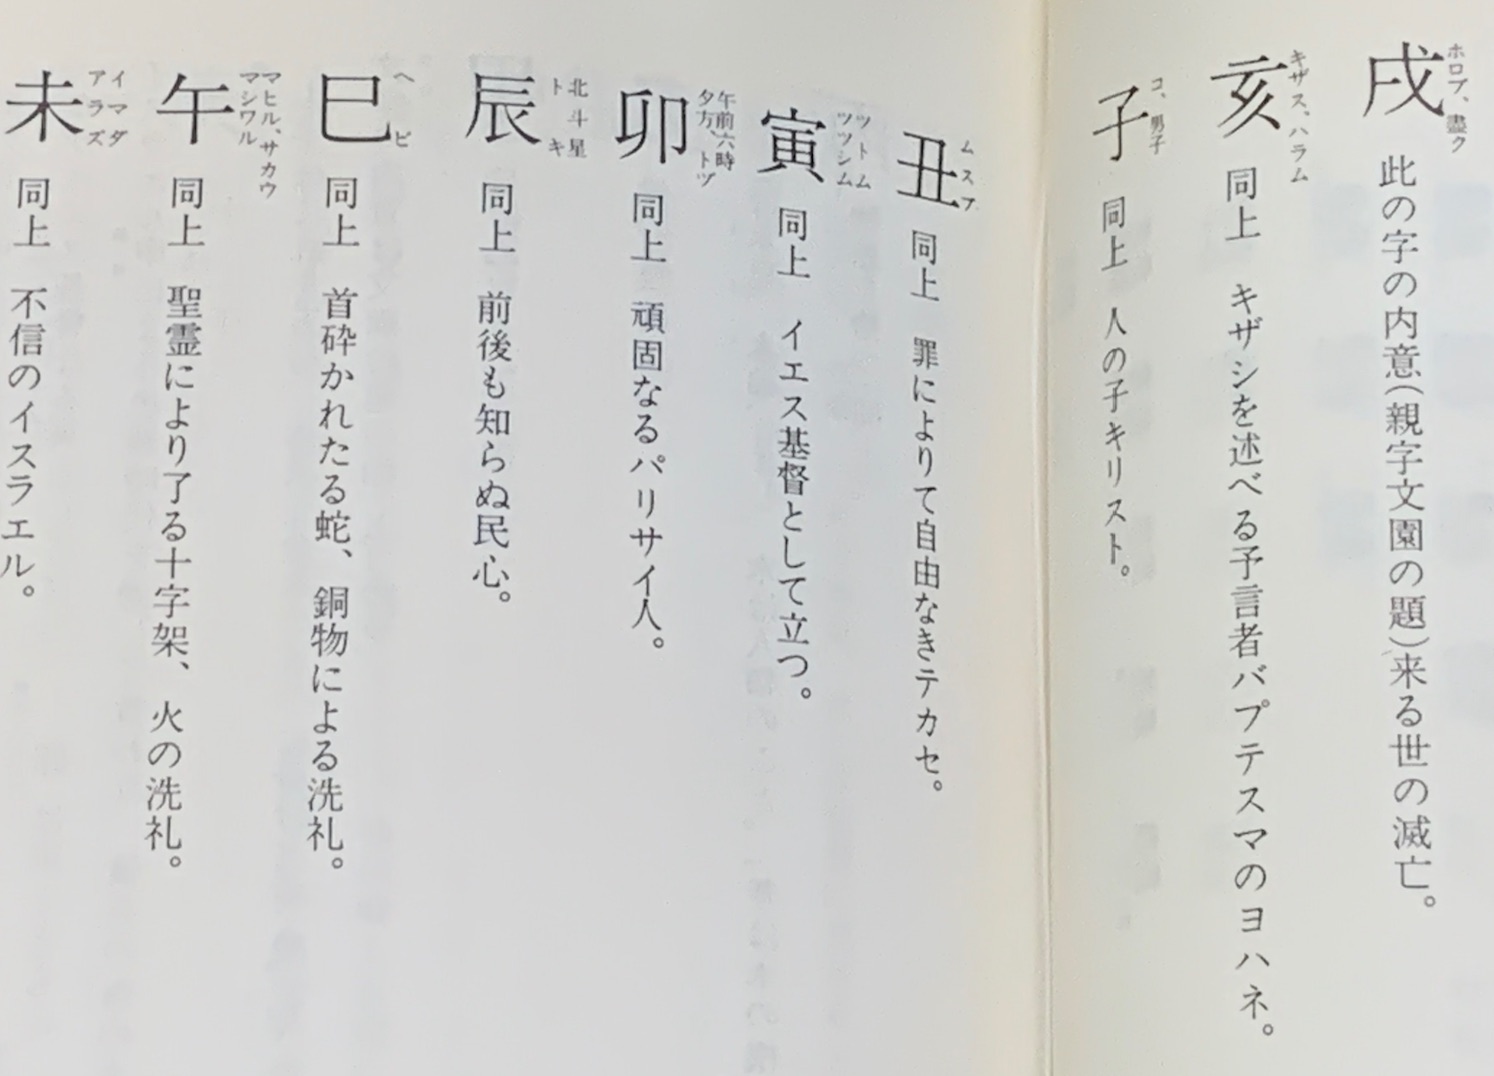 戌 ホロブ、盡ク 此の字の内意(親字文園の題)来る世の滅亡。
亥 キザス、ハラム 同上 キザシを述べる予言者バプテスマのヨハネ。
子 コ、男子 同上 人の子キリスト。
丑 ムスブ 同上 罪によりて自由なきテカセ。
寅 ツトム ツツシム 同上 イエス基督として立つ。
卯 午前六時 夕方、トヅ 同上 頑固なるパリサイ人。
辰 北斗星 トキ 同上 前後も知らぬ民心。
巳 ヘビ 同上 首砕かれたる蛇、銅物による洗礼。
午 マヒル、サカウ マシワル 同上 聖霊により了る十字架、火の洗礼。
未 イマダ アラズ 同上 不信のイスラエル。